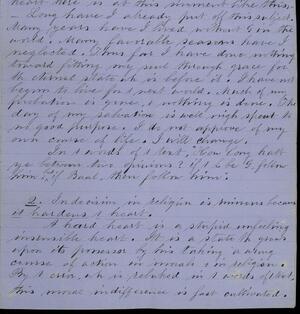 heart here is at this moment like this.
– Long have I already put off this subject.
Many years have I lived without G in the
world. Many favorable seasons have I
neglected. Thus far I have done nothing
toward fitting my soul through grace for
the eternal state wh is before it. I have not
begun to live for t next world. Much of my
probation is gone, & nothing is done. The
day of my salvation is well nigh spent to
no good purpose. I do not approve of my
own course of life. I will change.
In t words of t text, "How long halt
ye between two opinions? if t L be G. follow
him, "if Baal, then follow him."
2. Indecision in religion is ruinous because
it hardens t heart.
A hard heart is a stupid unfeeling
insensible heart. It is a state th grows
upon its possessor by his taking a wrong
course of action in morals & in religion.
By t evil, wh is rebuked in t words of t text,
this moral indifference is fast cultivated.